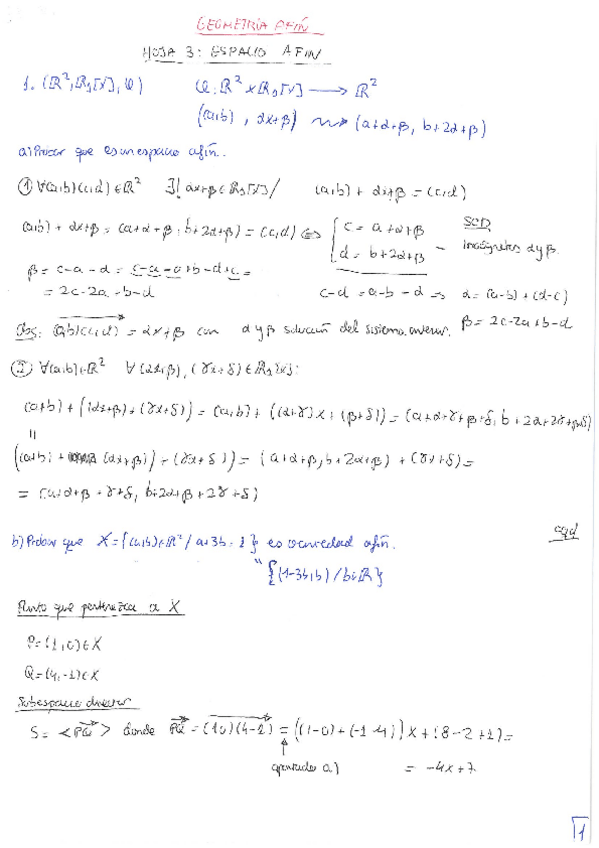 GEOMETRÍA AFÍN
HOJA 3: ESPACIO AFIN
1. (ℝ², ℝ₁[x], φ) φ: ℝ² × ℝ₁[x] → ℝ²
(a,b), αx+β) ⇝ (a+α+β, b+2α+β)
a) Probar que es un espacio afín.
① ∀(a,b)(c,d) ∈ ℝ² ∃! αx+β ∈ ℝ₁[x] / (a,b) + αx+β = (c,d)
(a,b) + αx+β = (a+α+β, b+2α+β) = (c,d) ⇔ { c = a+α+β
d = b+2α+β – SCD incógnitas α y β.
β = c-a-α = c-a-a+b-d+c =
= 2c-2a+b-d
c-d = a-b-α ⇒ α = (a-b)+(d-c)
β = 2c-2a+b-d
Obs: (a,b)(c,d) = αx+β con α y β solución del sistema anterior.
② ∀(a,b)∈ℝ² ∀(αx+β), (γx+δ) ∈ ℝ₁[x]:
(a,b) + ((αx+β)+(γx+δ)) = (a,b) + ((α+γ)x + (β+δ)) = (a+α+γ+β+δ, b+2α+2γ+β+δ)
=
((a,b) + (αx+β)) + (γx+δ) = (a+α+β, b+2α+β) + (γx+δ) =
= (a+α+β+γ+δ, b+2α+β+2γ+δ)
cqd
b) Probar que X = {(a,b)∈ℝ² / a+3b=1} es variedad afín.
" {(1-3b,b) / b∈ℝ}
Punto que pertenezca a X
P=(1,0)∈X
Q=(4,-1)∈X
Subespacio director
S = <PQ> donde PQ = (1,0)(4,-1) = ((1-0)+(-1-4))x + (8-2+1) =
apartado a) = -4x+7
1